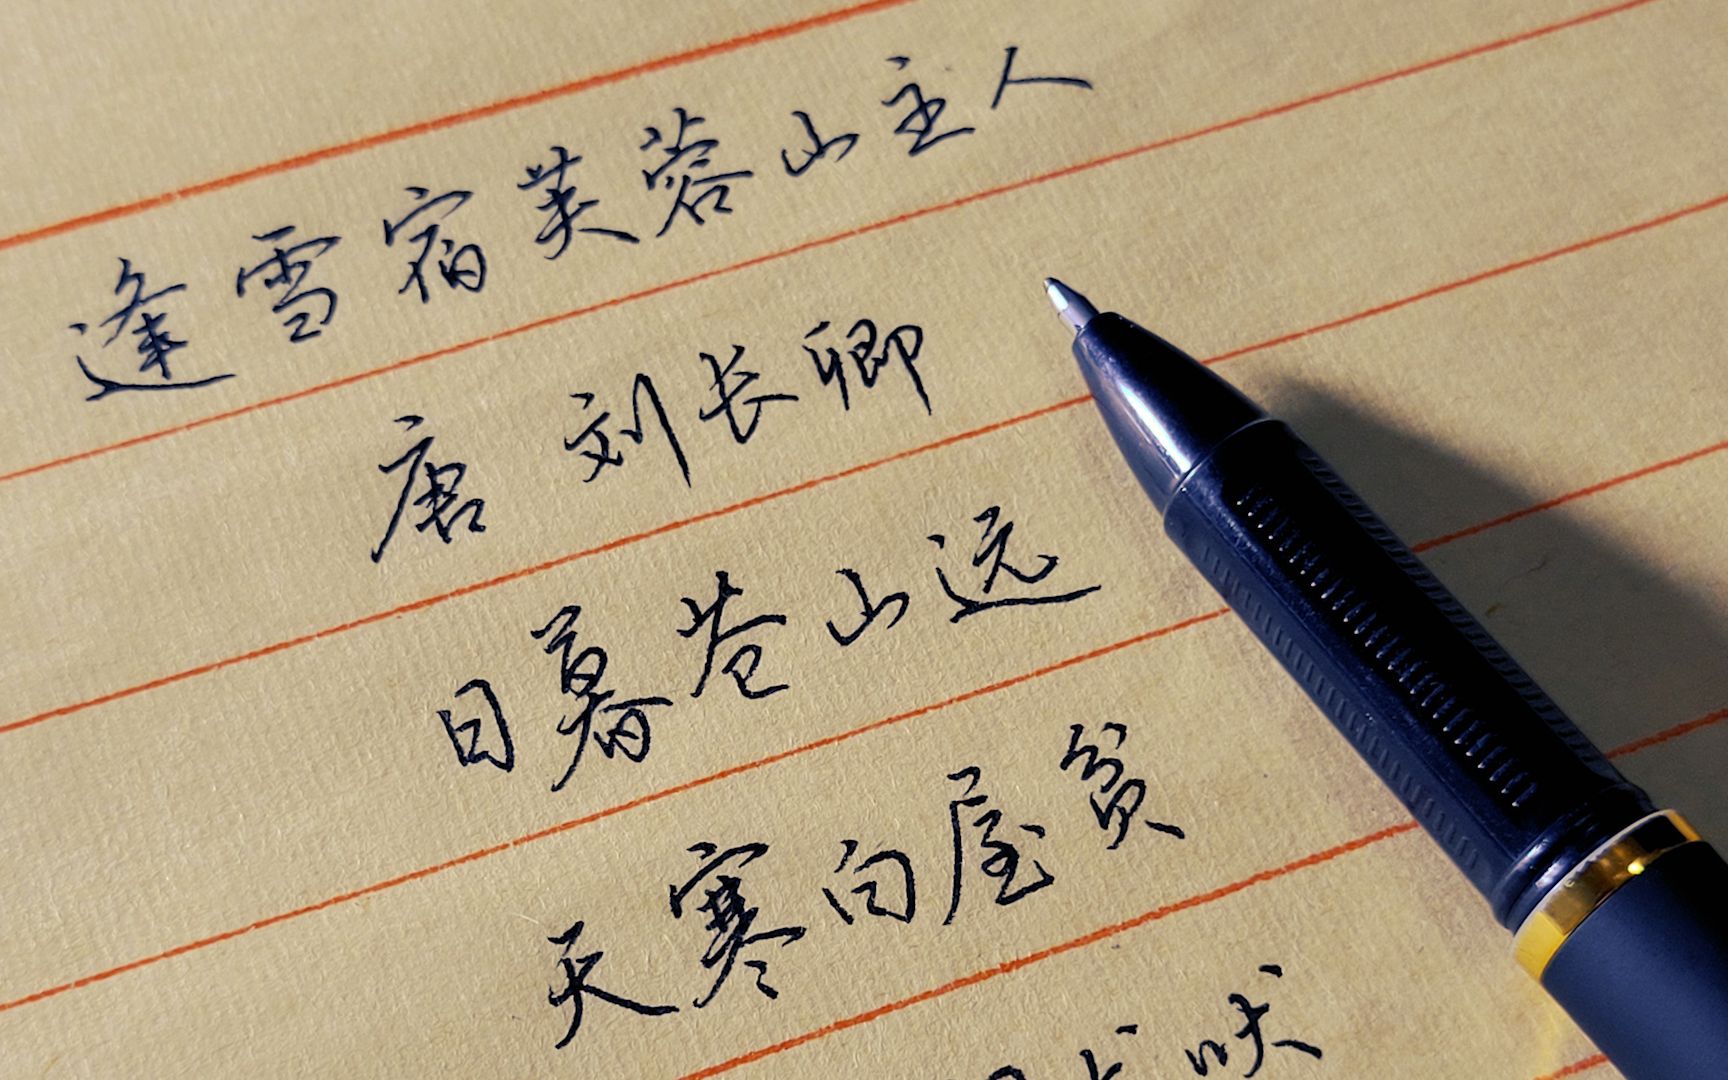 逢雪宿芙蓉山主人
唐 刘长卿
日暮苍山远
天寒白屋贫
吠